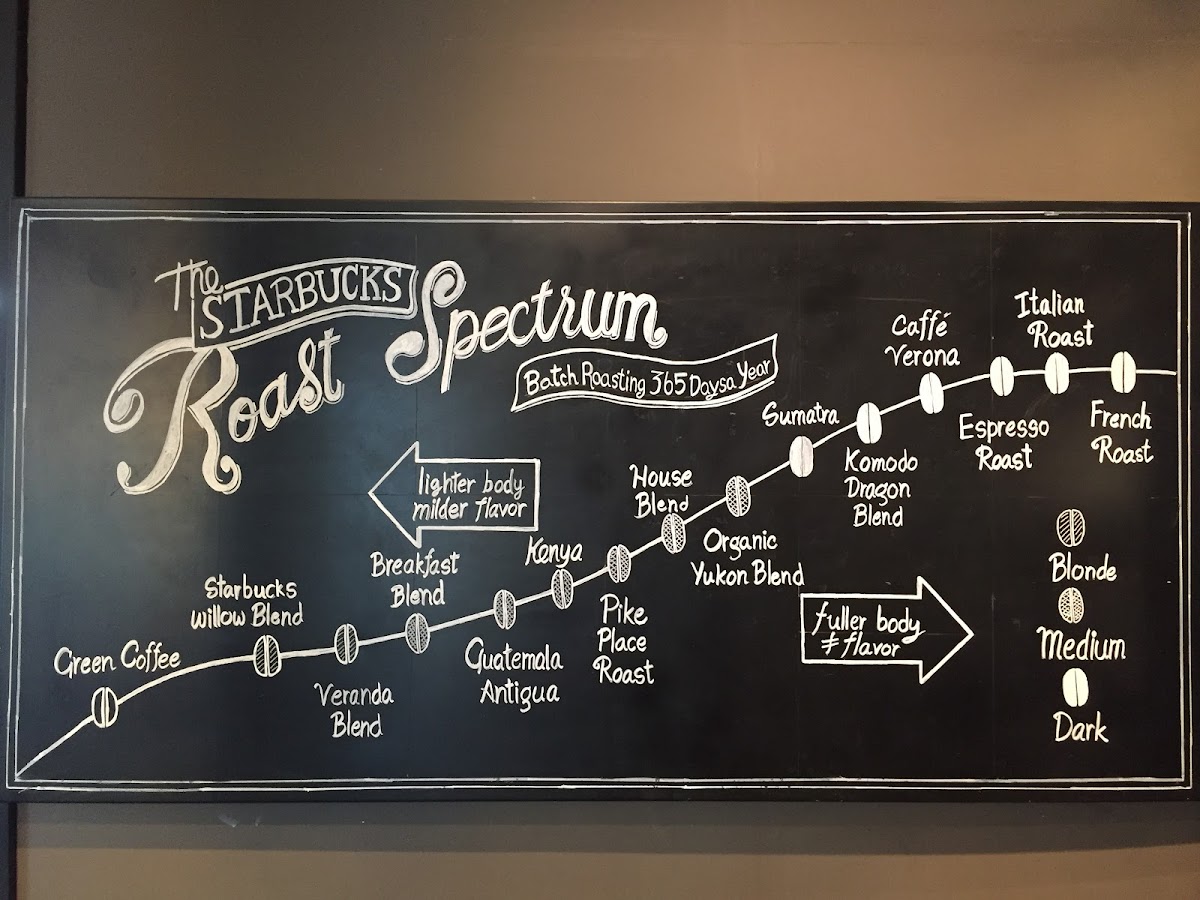 The
STARBUCKS
Roast Spectrum
Batch Roasting 365 Daysa Year
lighter body
milder flavor
Green Coffee
Starbucks
Willow Blend
Veranda
Blend
Breakfast
Blend
Guatemala
Antigua
Kenya
Pike
Place
Roast
House
Blend
Organic
Yukon Blend
Sumatra
Komodo
Dragon
Blend
Caffé
Verona
Espresso
Roast
Italian
Roast
French
Roast
fuller body
& flavor
Blonde
Medium
Dark